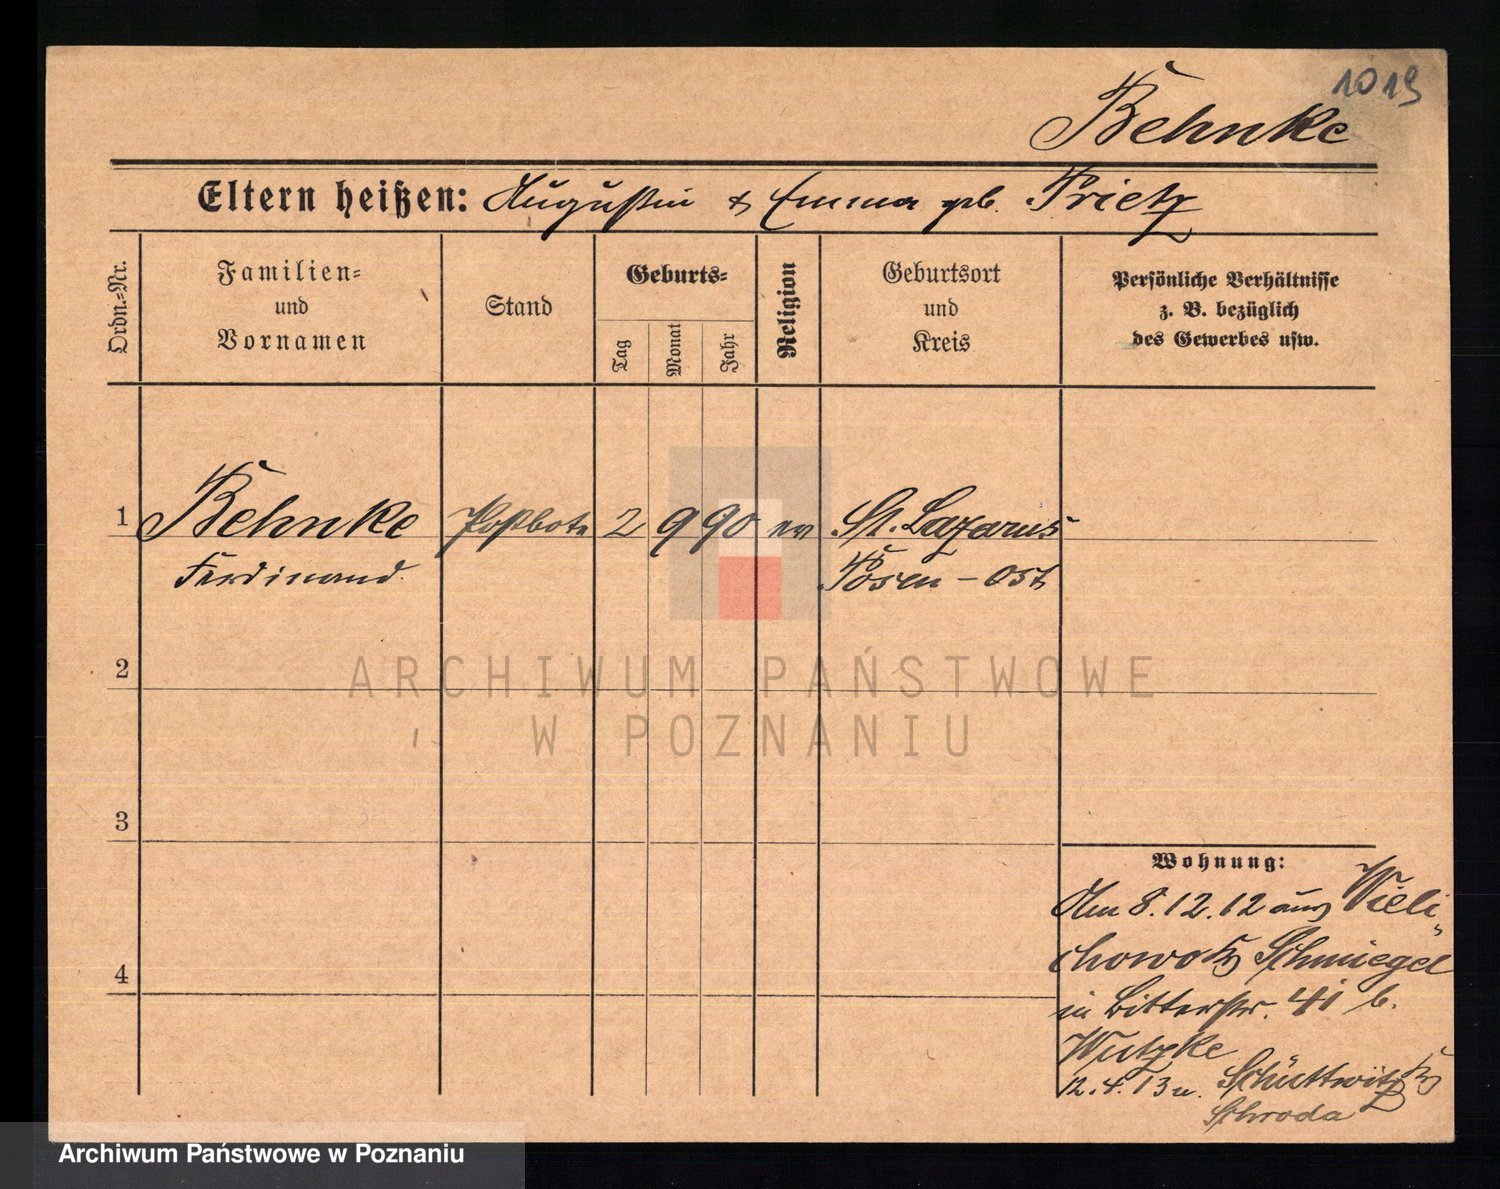 1019
Behnke
Eltern heißen: Augustin & Emma geb. Prietz
Ordn.=Nr.
Familien=
und
Vornamen
Stand
Geburts=
Tag
Monat
Jahr
Religion
Geburtsort
und
Kreis
Persönliche Verhältnisse
z. B. bezüglich
des Gewerbes usw.
1 Behnke Postbote 2 9 90 ev St. Lazarus
Ferdinand. Posen - Ost
2
3
4
Wohnung:
Am 8.12.12 aus Wieli
chowo Schmiegel
in Ritterstr. 41 b.
Wutzke
12.4.13 n. Schuttwitz
Schroda
ARCHIWUM PAŃSTWOWE
W POZNANIU
Archiwum Państwowe w Poznaniu